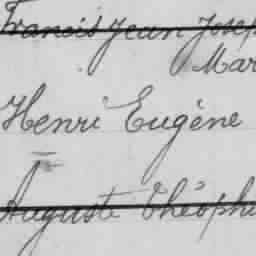 Francis Jean Josep
Mar
Henri Eugène
Auguste Théophi